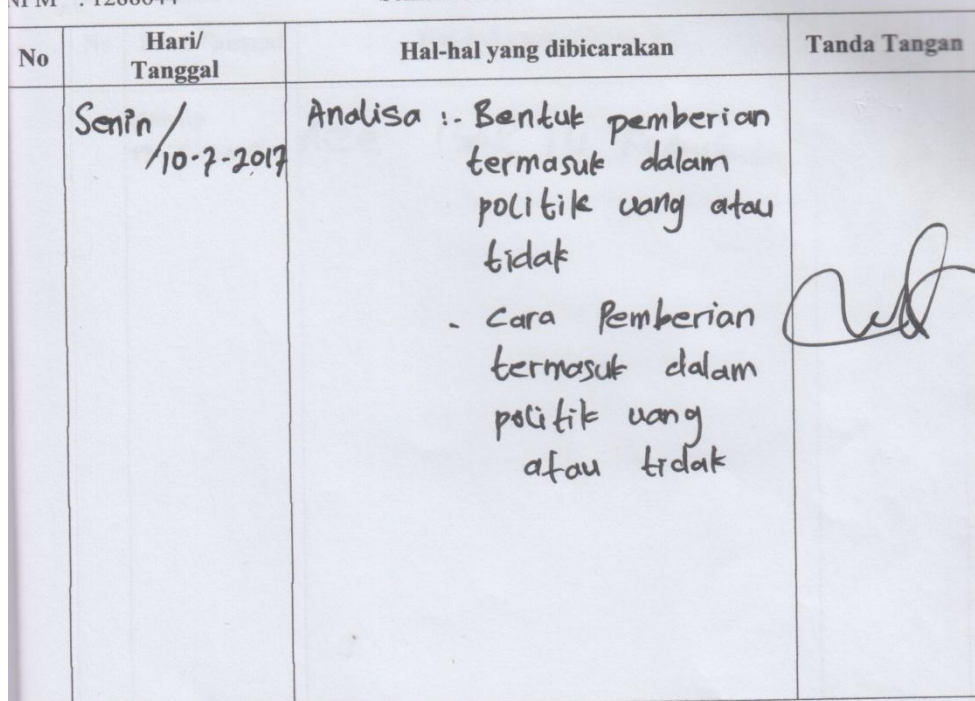 No
Hari/
Tanggal
Hal-hal yang dibicarakan
Tanda Tangan
Senin/
10-7-2017
Analisa :- Bentuk pemberian
termasuk dalam
politik uang atau
tidak
- Cara Pemberian
termasuk dalam
politik uang
atau tidak